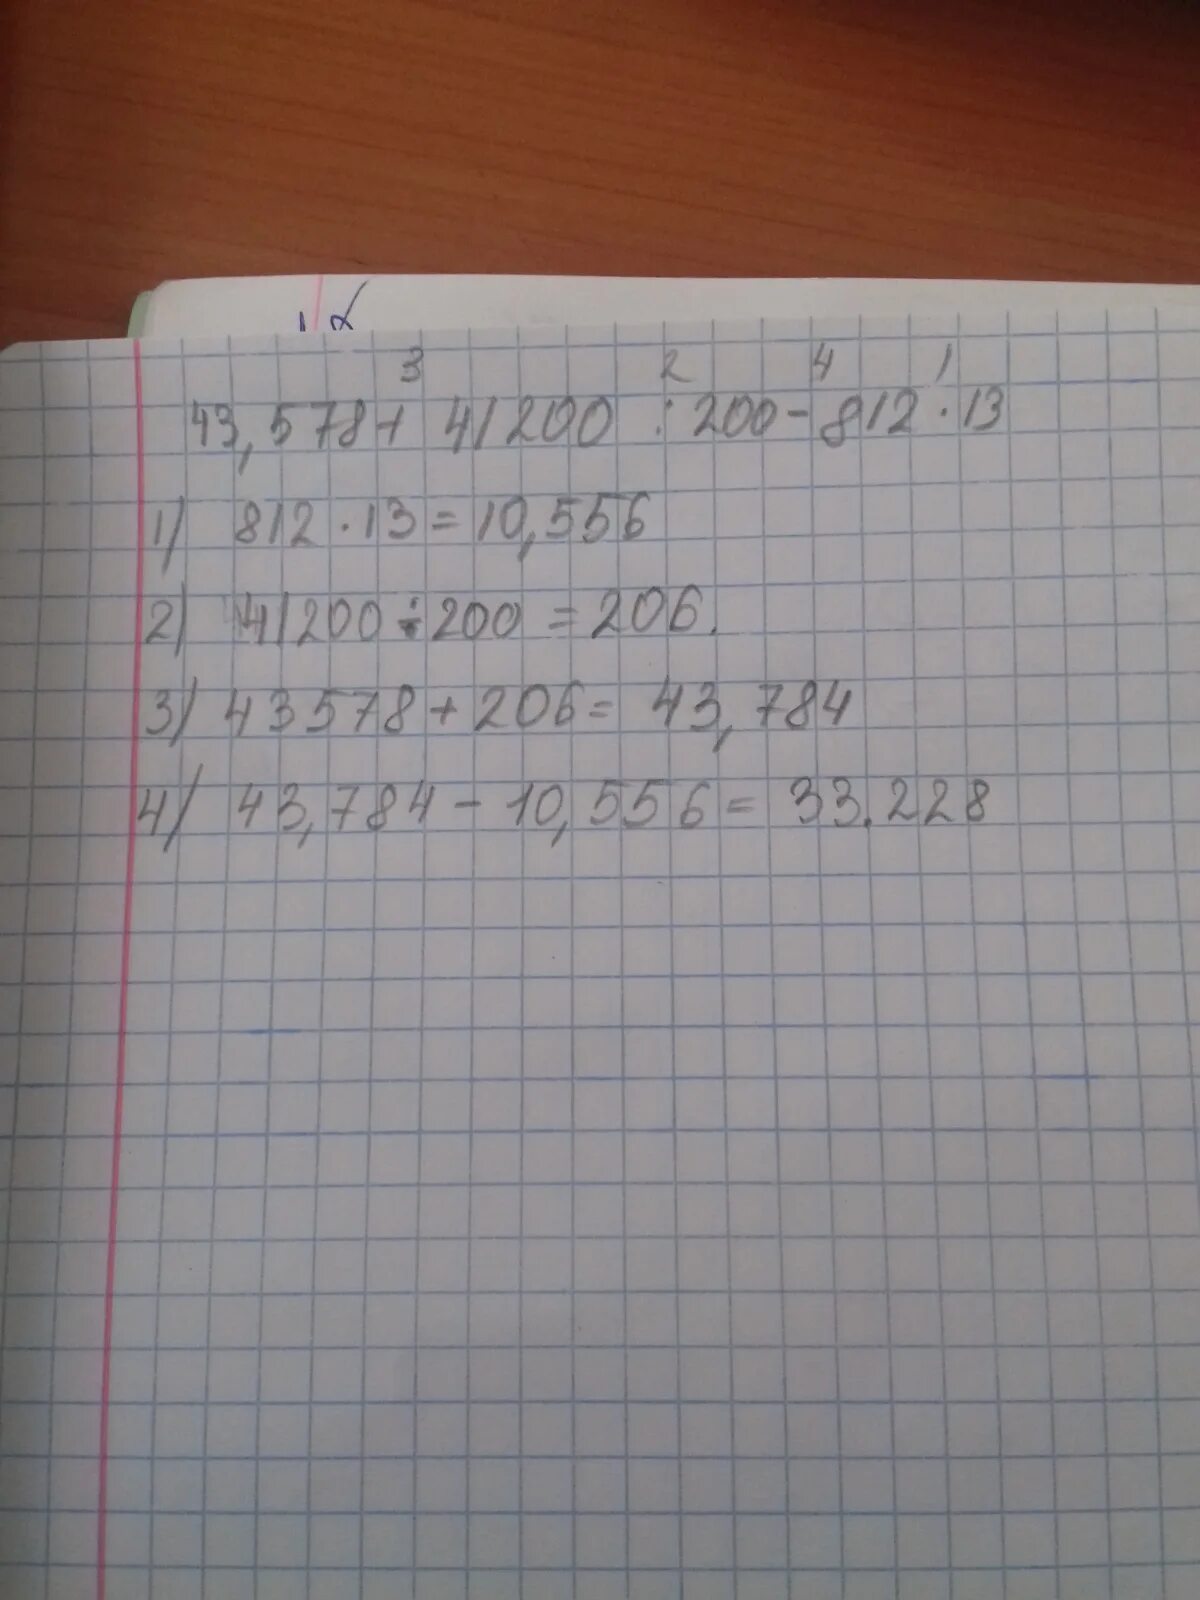 3 2 4 1
43,578+ 41200 : 200 - 812 · 13
1) 812 · 13 = 10,556
2) 41200 ÷ 200 = 206.
3) 43578 + 206 = 43,784
4) 43,784 - 10,556 = 33.228